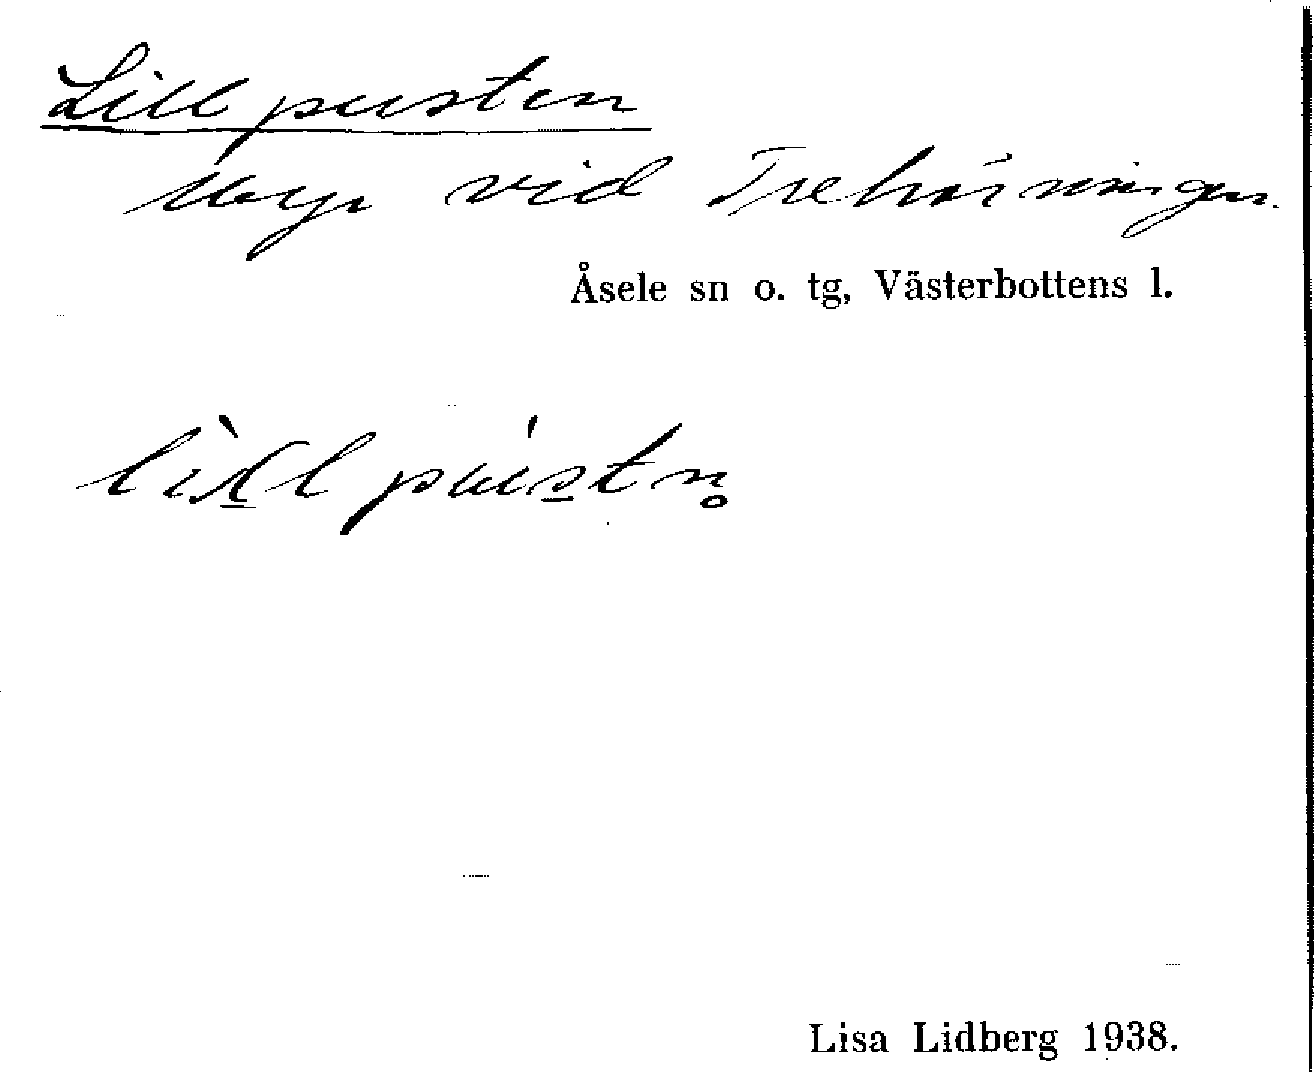 Lillpusten
Myr vid Trehörningen.
Åsele sn o. tg, Västerbottens l.
lìl̠lpús̠tn̥
Lisa Lidberg 1938.